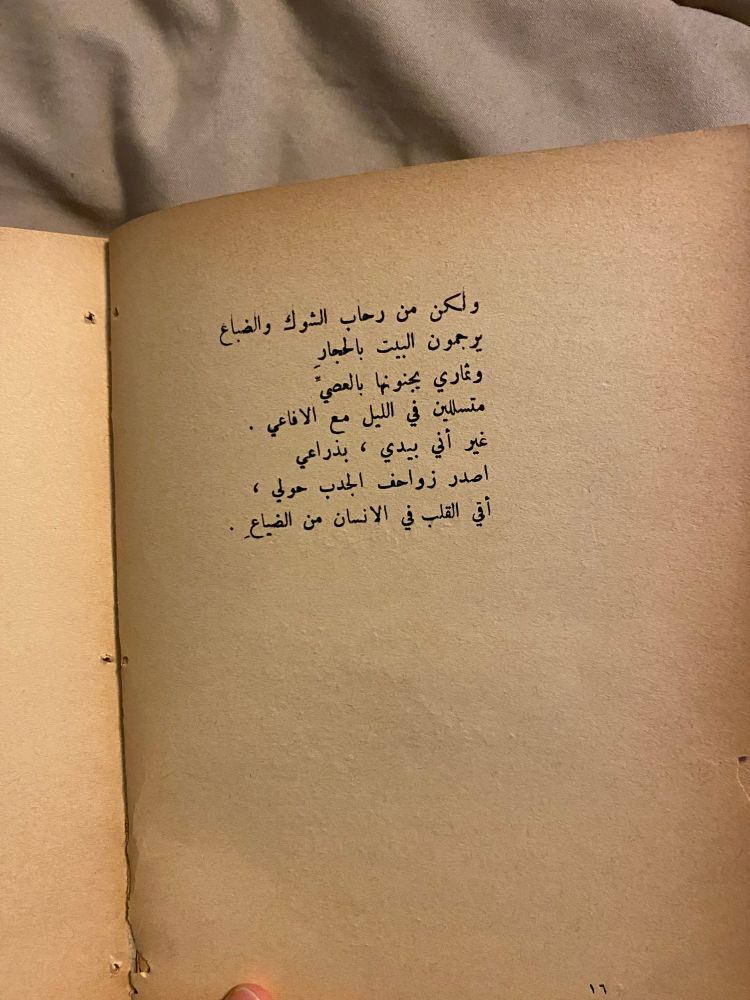 ولكن من رحاب الشوك والضباع
يرجمون البيت بالحجارِ
وثماري يجنونها بالعصيِّ
متسللين في الليل مع الافاعي .
غير أني بيدي ، بذراعي
اصدر زواحف الجدب حولي ،
أقي القلب في الانسان من الضياعِ .
١٦